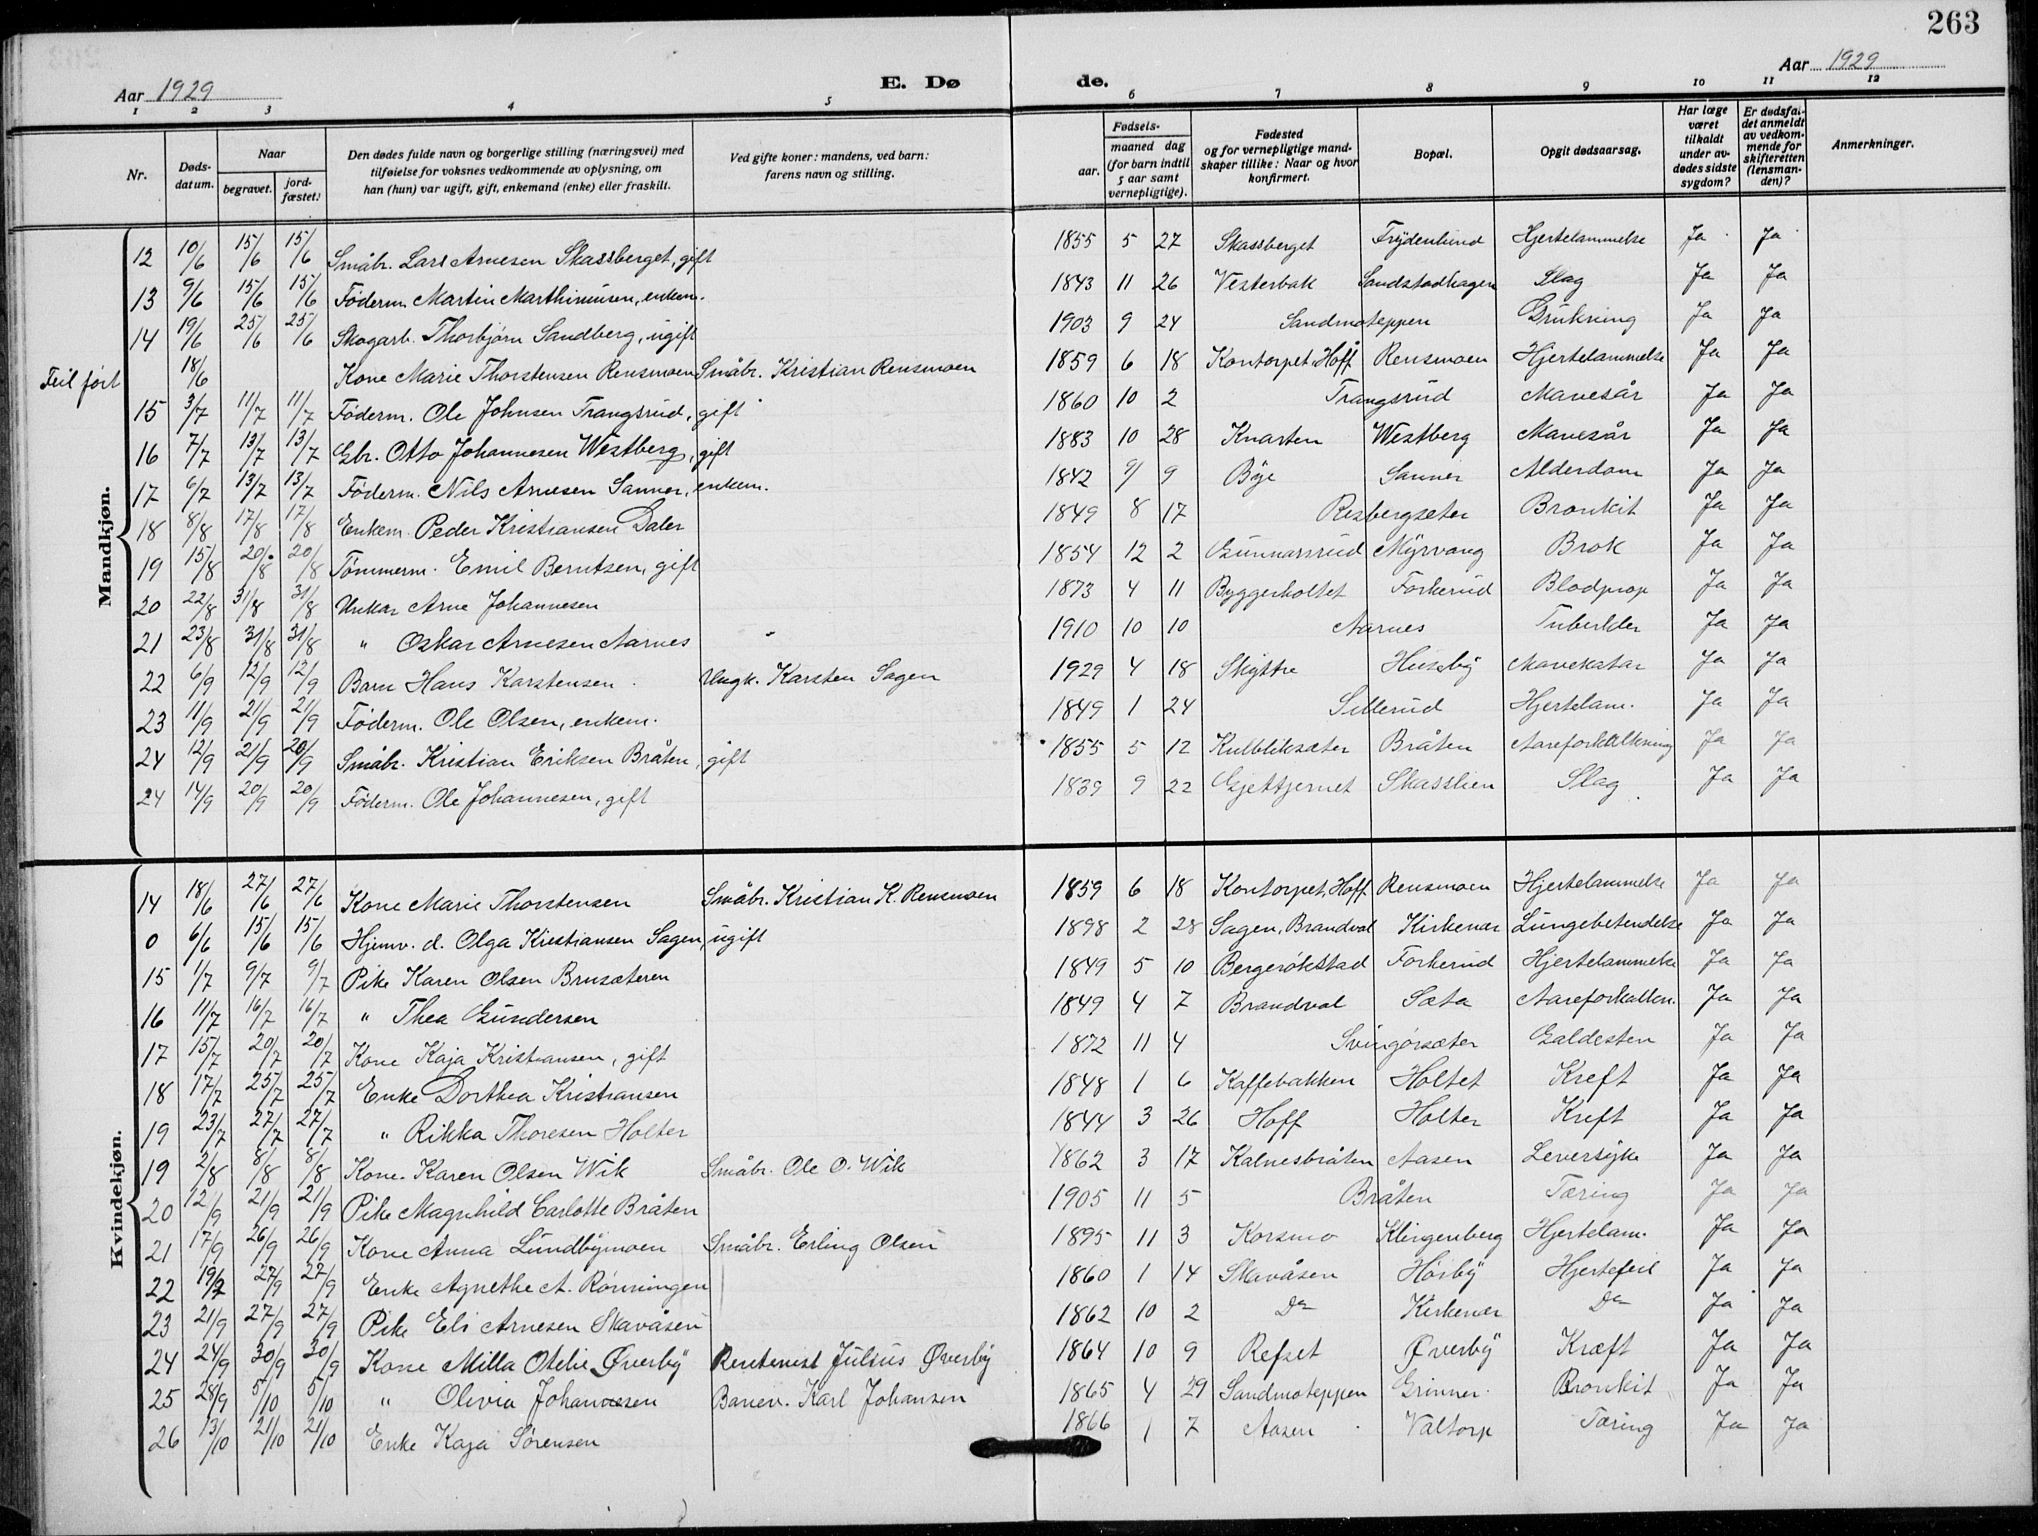 263
Aar 1929 E. Dø de. Aar 1929
1 2 3 4 5 6 7 8 9 10 11 12
Nr. Døds-datum. Naar begravet. jord-fæstet. Den dødes fulde navn og borgerlige stilling (næringsvei) med tilføielse for voksnes vedkommende av oplysning, om han (hun) var ugift, gift, enkemand (enke) eller fraskilt. Ved gifte koner: mandens, ved barn: farens navn og stilling. Fødsels- aar. maaned dag (for barn indtil 5 aar samt vernepligtige). Fødested og for vernepligtige mandskaper tillike: Naar og hvor konfirmert. Bopæl. Opgit dødsaarsag. Har læge været tilkaldt under avdødes sidste sygdom? Er dødsfaldet anmeldt av vedkommende for skifteretten (lensmanden)? Anmerkninger.
Mandkjøn.
12 10/6 15/6 15/6 Småbr. Lars Arnesen Skassberget, gift 1855 5 27 Skassberget Frydenlund Hjertelammelse Ja Ja
13 9/6 15/6 15/6 Føderm. Martin Marthinusen, enkem. 1843 11 26 Vesterbak Sandstadhagen Slag Ja Ja
14 19/6 25/6 25/6 Skogarb. Thorbjørn Sandberg, ugift 1903 9 24 Sandmoteppen Drukning Ja Ja
Feil ført 18/6 Kone Marie Thorstensen Rensmoen Småbr. Kristian Rensmoen 1859 6 18 Kontorpet, Hoff Rensmoen Hjertelammelse Ja Ja
15 3/7 11/7 11/7 Føderm. Ole Johnsen Trangsrud, gift 1860 10 2 Trangsrud Mavesår Ja Ja
16 7/7 13/7 13/7 Gbr. Otto Johannesen Westberg, gift 1883 10 28 Knarten Westberg Mavesår Ja Ja
17 6/7 13/7 13/7 Føderm. Nils Arnesen Sanner, enkem. 1842 9 9 Bye Sanner Alderdom Ja Ja
18 8/8 17/8 17/8 Enkem. Peder Kristiansen Daler 1849 8 17 Risbergseter Bronkit Ja Ja
19 15/8 20/8 20/8 Tømmerm. Emil Berntsen, gift 1854 12 2 Gunnarsrud Myrvang Brok Ja Ja
20 22/8 31/8 31/8 Unkar Arne Johannesen 1873 4 11 Byggerholtet Forkerud Blodprop Ja Ja
21 23/8 31/8 31/8 " Oskar Arnesen Aarnes " 1910 10 10 Aarnes Tuberkler Ja Ja
22 6/9 12/9 12/9 Barn Hans Karstensen Ungk. Karsten Sagen 1929 4 18 Skyttre Huseby Mavekatar Ja Ja
23 11/9 21/9 21/9 Føderm. Ole Olsen, enkem. 1849 1 24 Sillerud Hjertelam. Ja Ja
24 12/9 21/9 20/9 Småbr. Kristian Eriksen Bråten, gift 1855 5 12 Kulbliksæter Bråten Aareforkalkning Ja Ja
24 14/9 20/9 20/9 Føderm. Ole Johannesen, gift 1839 9 22 Gjettjernet Skasslien Slag Ja Ja
Kvindekjøn.
14 18/6 27/6 27/6 Kone Marie Thorstensen Småbr. Kristian K. Rensmoen 1859 6 18 Kontorpet, Hoff Rensmoen Hjertelammelse Ja Ja
0 6/6 15/6 15/6 Hjemv. d. Olga Kristiansen Sagen, ugift 1898 2 28 Sagen, Brandval Kirkenær Lungebetendelse Ja Ja
15 1/7 9/7 9/7 Pike Karen Olsen Brusæteren 1849 5 10 Bergerøkstad Forkerud Hjertelammelse Ja Ja
16 11/7 16/7 16/7 " Thea Gundersen 1849 4 7 Brandval Sæta Aareforkalkn. Ja Ja
17 15/7 20/7 20/7 Kone Kaja Kristiansen, gift 1872 11 4 Svingørsæter Galdesten Ja Ja
18 17/7 25/7 25/7 Enke Dorthea Kristiansen 1848 1 6 Kaffebakken Holtet Kreft Ja Ja
19 23/7 27/7 27/7 " Rikka Thoresen Holter 1844 3 26 Hoff Holter Kreft Ja Ja
19 2/8 8/8 8/8 Kone. Karen Olsen Wik Småbr. Ole O. Wik 1862 3 17 Kalnesbråten Aasen Leversyke Ja Ja
20 12/9 21/9 21/9 Pike Magnhild Carlotte Bråten 1905 11 5 Bråten Tæring Ja Ja
21 17/9 26/9 26/9 Kone Anna Lundbymoen Småbr. Erling Olsen 1895 11 3 Korsmo Klingenberg Hjertelam. Ja Ja
22 19/9 27/9 27/9 Enke Agnethe A. Rønningen 1860 1 14 Skavåsen Hørby Hjertefeil Ja Ja
23 21/9 27/9 27/9 Pike Eli Arnesen Skavåsen 1862 10 2 Do Kirkenær Do Ja Ja
24 24/9 30/9 30/9 Kone Milla Otelie Øverby Rentenist Julius Øverby 1864 10 9 Refset Øverby Kræft Ja Ja
25 28/9 5/10 5/10 " Olivia Johannesen Banev. Karl Johansen 1865 4 29 Sandmoteppen Grinner Bronkit Ja Ja
26 13/10 21/10 21/10 Enke Kaja Sørensen 1866 1 7 Aasen Valtorp Tæring Ja Ja